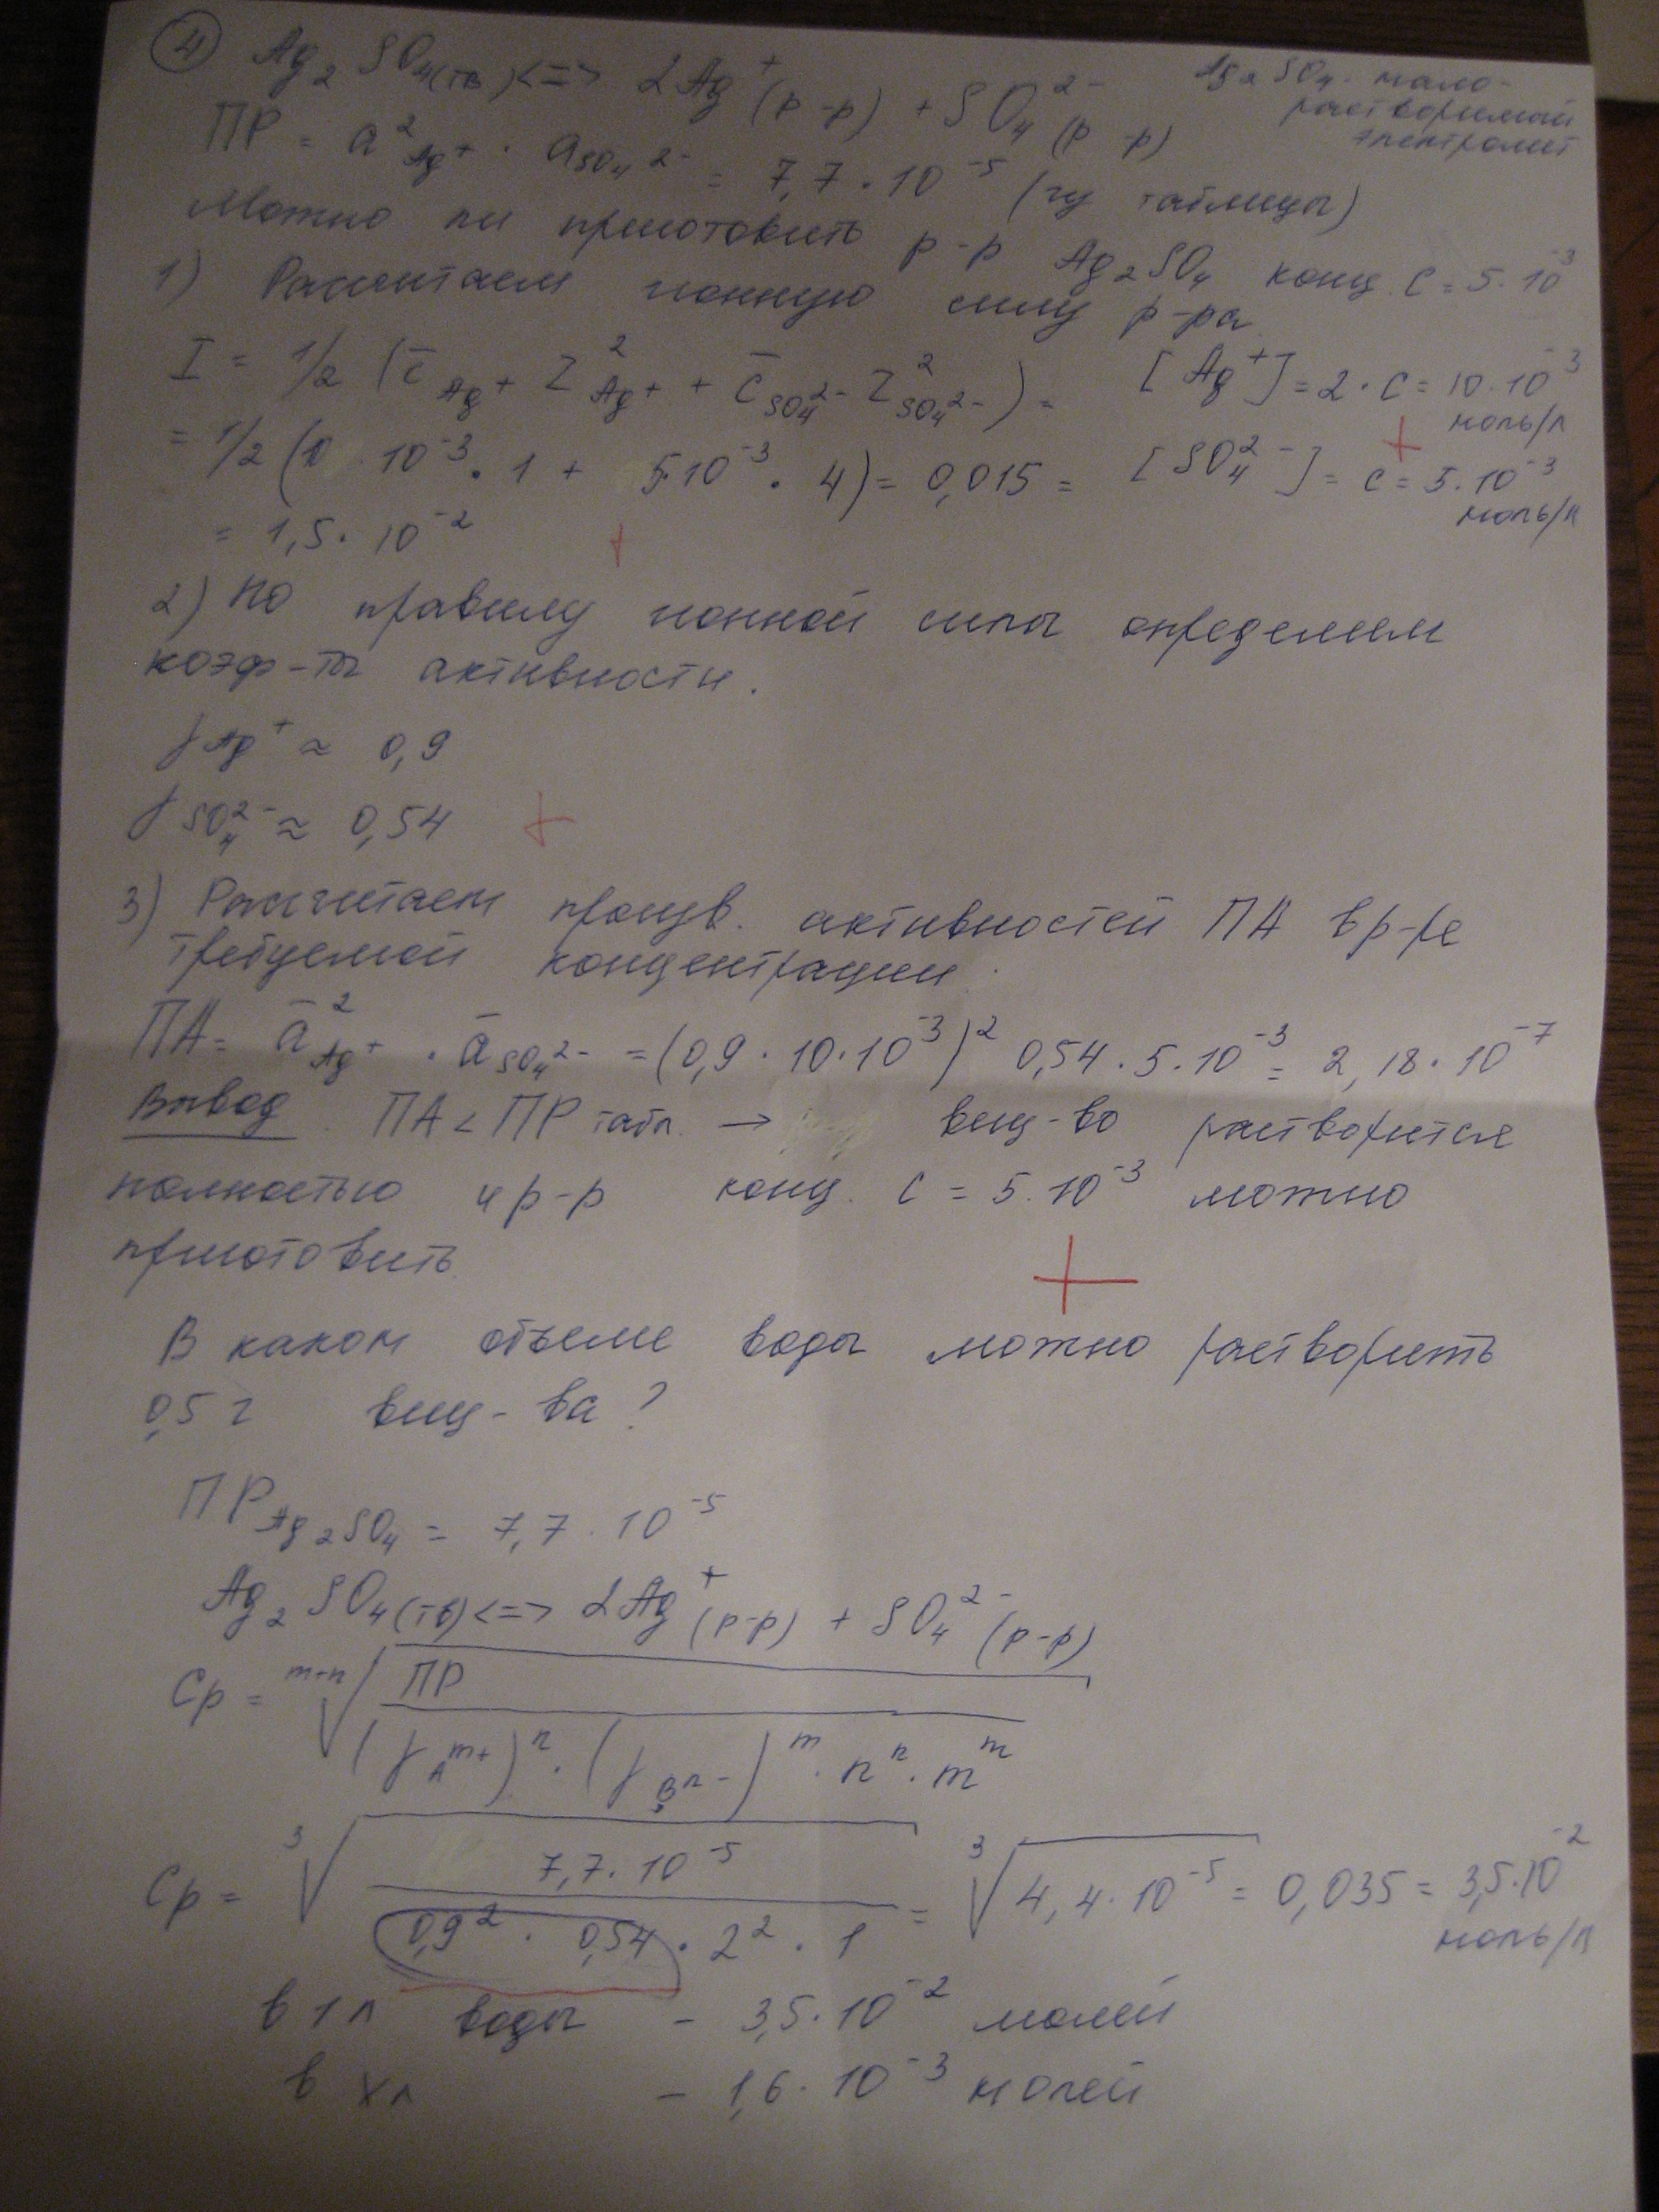 4) Ag2SO4(тв) <=> 2Ag⁺(р-р) + SO4²⁻(р-р)
Ag2SO4 - мало-
растворимый
электролит
ПР = a²Ag⁺ · aSO4²⁻ = 7,7 · 10⁻⁵ (из таблицы)
Можно ли приготовить р-р Ag2SO4 конц. C = 5 · 10⁻³
1) Рассчитаем ионную силу р-ра
I = 1/2 (c̄Ag⁺ Z²Ag⁺ + c̄SO4²⁻ Z²SO4²⁻) =
[Ag⁺] = 2 · C = 10 · 10⁻³
моль/л
= 1/2 (10 · 10⁻³ · 1 + 5 · 10⁻³ · 4) = 0,015 =
[SO4²⁻] = C = 5 · 10⁻³
моль/л
= 1,5 · 10⁻²
2) По правилу ионной силы определим
коэф-ты активности.
fAg⁺ ≈ 0,9
fSO4²⁻ ≈ 0,54
3) Рассчитаем произв. активностей ПА в р-ре
требуемой концентрации.
ПА = ā²Ag⁺ · āSO4²⁻ = (0,9 · 10 · 10⁻³)² 0,54 · 5 · 10⁻³ = 2,18 · 10⁻⁷
Вывод. ПА < ПР табл. → вещ-во растворится
полностью и р-р конц. C = 5 · 10⁻³ можно
приготовить
В каком объеме воды можно растворить
0,5 г вещ-ва?
ПР Ag2SO4 = 7,7 · 10⁻⁵
Ag2SO4(тв) <=> 2Ag⁺(р-р) + SO4²⁻(р-р)
Cр = ᵐ⁺ⁿ√ ПР
(fAᵐ⁺)ⁿ · (fBⁿ⁻)ᵐ · nⁿ · mᵐ
Cр = ³√ 7,7 · 10⁻⁵ = ³√4,4 · 10⁻⁵ = 0,035 = 3,5 · 10⁻²
0,9² · 0,54 · 2² · 1
моль/л
в 1 л воды - 3,5 · 10⁻² молей
в x л - 1,6 · 10⁻³ молей